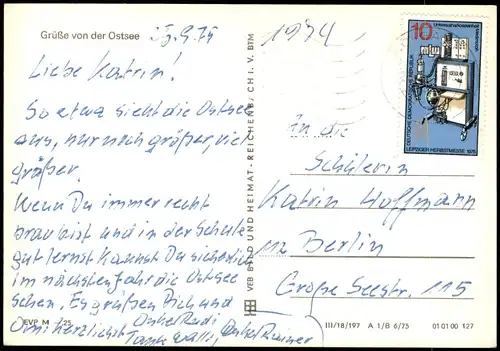 Grüße von der Ostsee
25.9.75
1974
Liebe Katrin!
So etwa sieht die Ostsee
aus, nur noch größer, viel
größer.
Wenn Du immer recht
brav bist und in der Schule
gut lernst kannst Du sicherlich
im nächsten Jahr die Ostsee
sehen. Es grüßen Dich und
Omi herzlichst Onkel Rudi
Tante Walli, Onkel Rainer
EVP M -,25
VEB BILD UND HEIMAT · REICHENB./ CH I. V. BTM
10
DEUTSCHE DEMOKRATISCHE REPUBLIK
LEIPZIGER HERBSTMESSE 1975
In die
Schülerin
Katrin Hoffmann
in Berlin
Große Seestr. 115
III/18/197 A 1/B 6/75 01 01 00 127